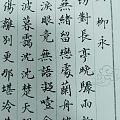 柳永
切對長亭晚驟雨
無緒留戀處蘭舟
無語凝噎
波暮靄沉沉楚天
傷離別更那堪冷